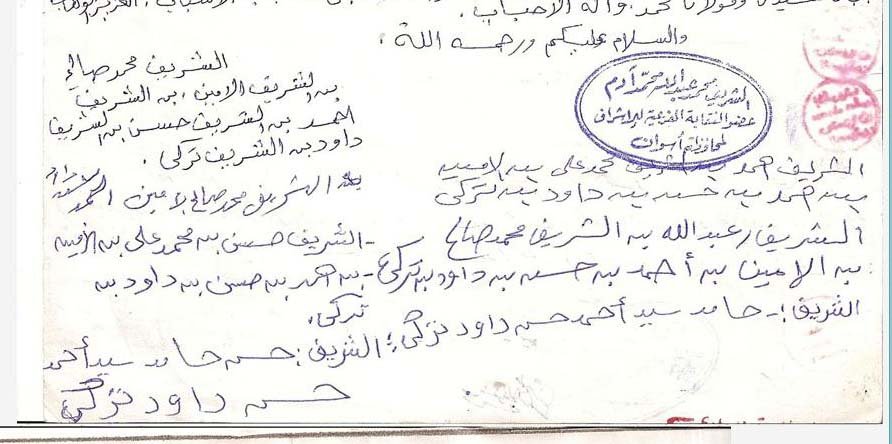 سيدنا ومولانا محمد وآله الأحباب.
والسلام عليكم ورحمه الله.
الشريف محمد صالح
بن الشريف الامين، بن الشريف
احمد بن الشريف حسن بن الشريف
داود بن الشريف تركى.
الشريف محمد عبدالله محمد آدم
عضو النقابة الفرعية للاشراف
لمحافظة أسوان
الشريف احمد بن الشريف محمد على بن الامين
بن احمد بن حسن بن داود بن تركى
الشريف محمد صالح الامين احمد
الشريف / عبد الله بن الشريف محمد صالح
بن الامين بن أحمد بن حسن بن داود بن تركى
- الشريف حسين بن محمد على بن الامين
- بن احمد بن حسن بن داود بن
تركى.
الشريف :- حامد سيد أحمد حسن داود تركى؛ الشريف : حسن حامد سيد أحمد
حسن داود تركى